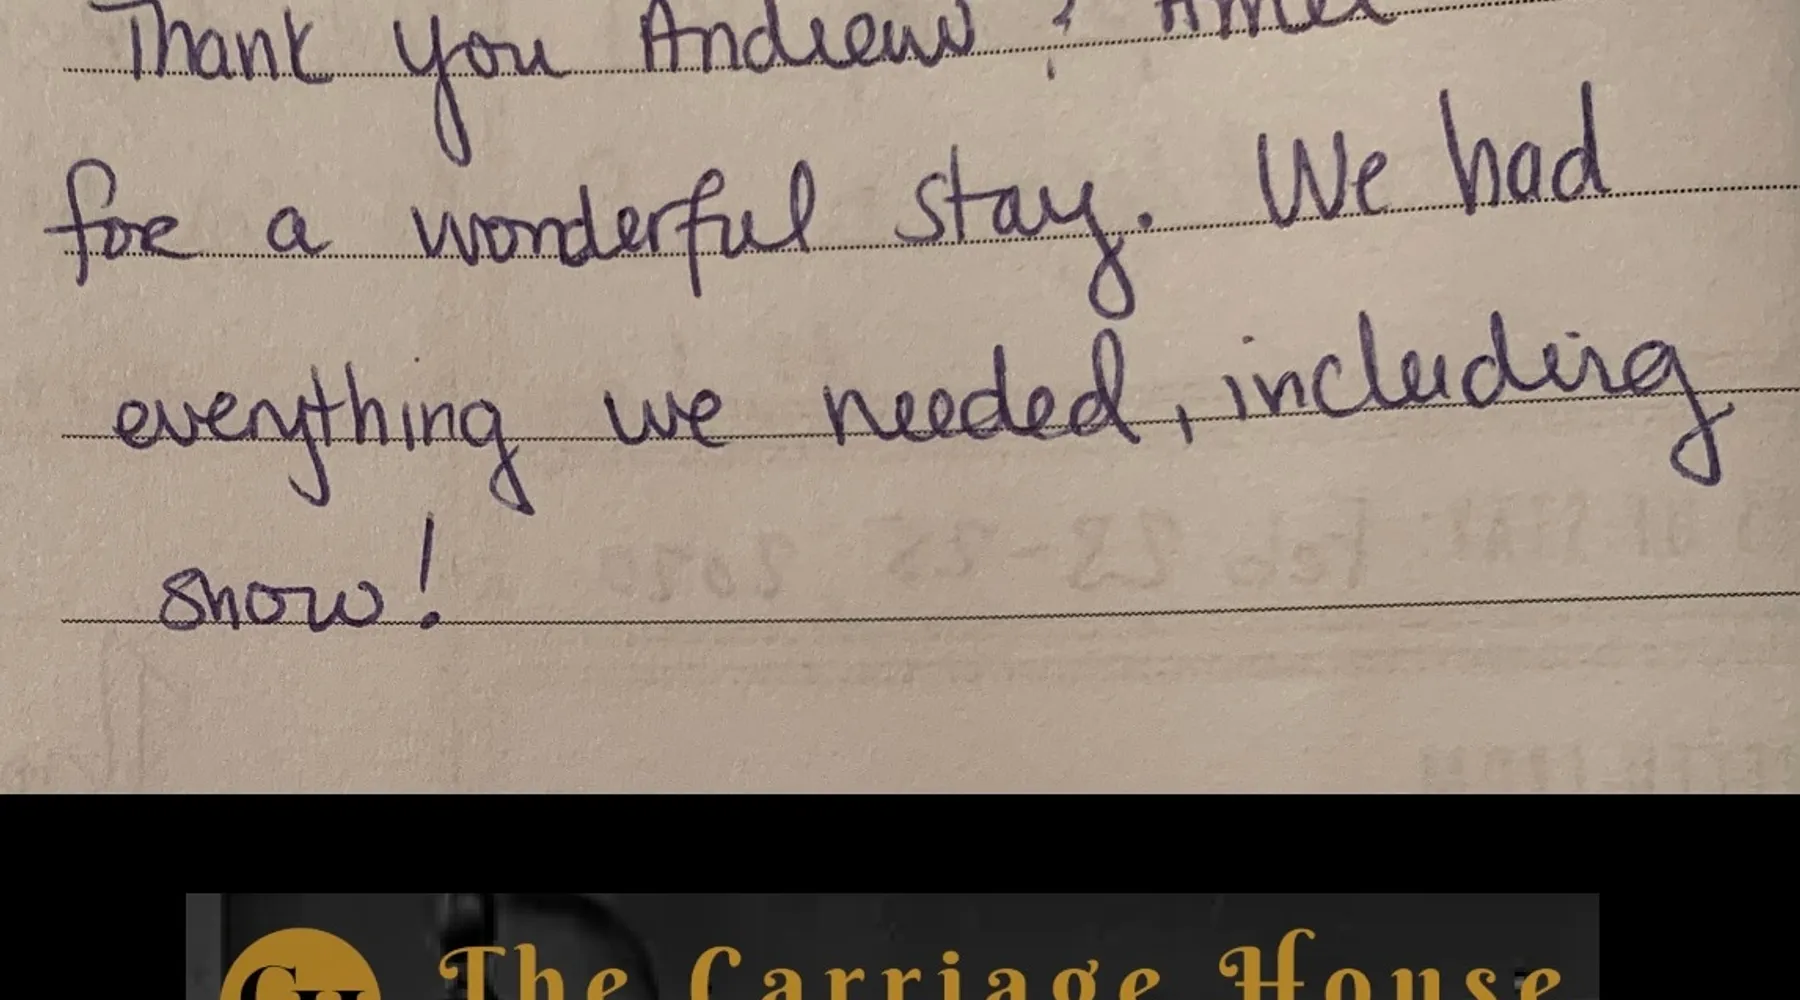 Thank you Andrew &
for a wonderful stay. We had
everything we needed, including
snow!
Feb 23-25 2020
The Carriage House